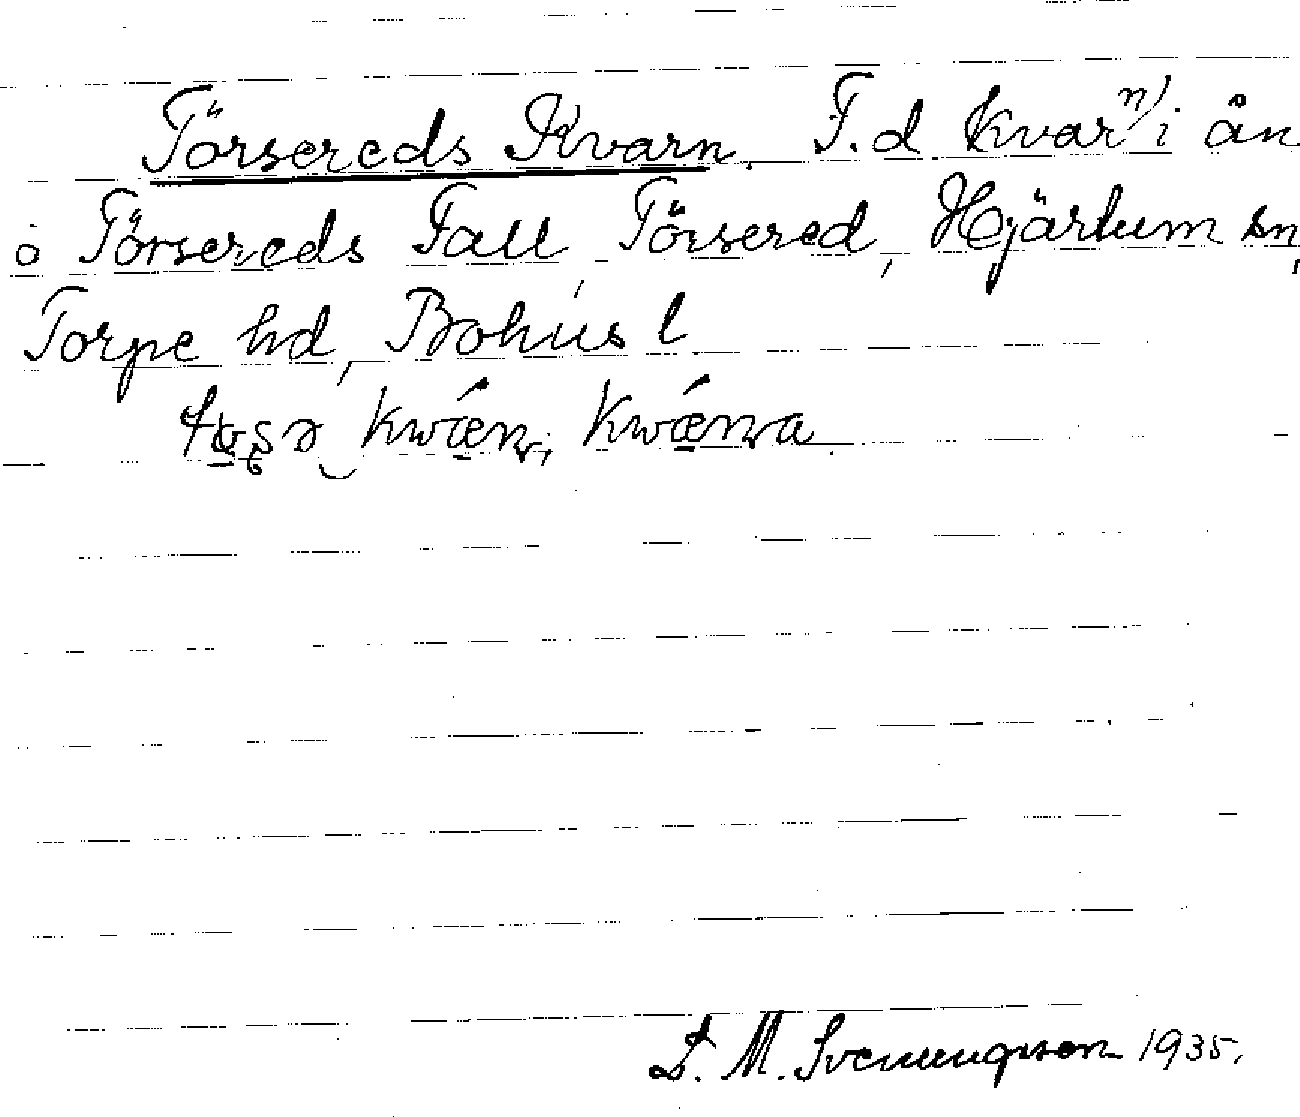 Törsereds Kvarn. F.d kvarn i ån
å Törsereds Fall, Törsered, Hjärtum sn,
Torpe hd, Bohus l
kwǽn, kwǽna
D. M. Svenungsson 1935.